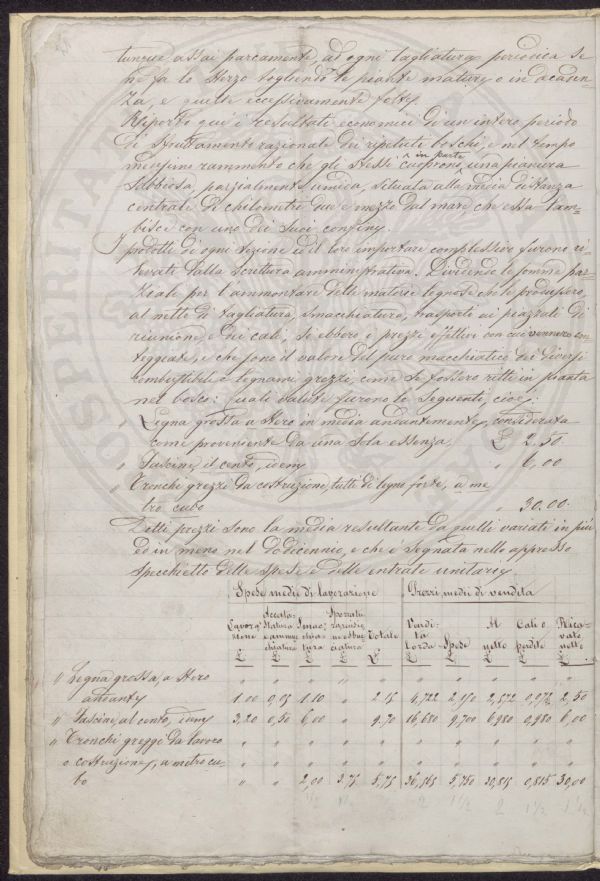 tunque assai parcamente, ad ogni tagliatura periodica se
ne fa lo sterzo togliendo le piante mature o in decaden-
za, e quelle eccessivamente folte.
Riporto qui i resultati economici di un intero periodo
di sfruttamento razionale dei ripetuti boschi, e nel tempo
medesimo rammento che gli stessi cuoprono in parte una pianura
sabbiosa, parzialmente umida, situata alla media distanza
centrale di chilometri due e mezzo dal mare che essa lam-
bisce con uno dei suoi confini.
I prodotti di ogni sezione ed il loro importare complessivo furono ri-
levati dalla scrittura amministrativa. Dividendo le somme par-
ziali per l'ammontare delle materie legnose che le produssero,
al netto di tagliatura, smacchiatura, trasporto ai piazzali di
riunione, e dei cali, si ebbero i prezzi effettivi con cui vennero con-
teggiate, e che sono il valore del puro macchiatico dei diversi
combustibili e legnami grezzi, come se fossero ritti in pianta
nel bosco: quali valute furono le seguenti, cioè:
Legna grossa a stero in media andantemente, considerata
come proveniente da una sola essenza, £ 2.50.
" Fascine, il cento, idem " 6,00
" Tronchi grezzi da costruzione, tutti di legno forte, a me
tro cubo " 30.00.
Detti prezzi sono la media resultante da quelli variati in più
ed in meno nel dodicennio, e che è segnata nello appresso
specchietto delle spese e delle entrate unitarie.
Spese medie di lavorazione Prezzi medii di vendita
Lavora zione £ Smac chia tura £ Totale £ Vendi ta lorda £ Spese £ Al netto £ Cali o perdite £ Rica vato netto £
" Legna grossa, a stero " " " " " " " " " "
andante 1.00 0,05 1.10 " 2.15 4,722 2,150 2,572 0,072 2,50
" Fascine, al cento, idem 3,20 0,50 6,00 " 9.70 16,680 9,700 6,980 0,980 6,00
" Tronchi greggi da lavoro " " " " " " " " " "
o costruzione, a metro cu-
bo " " 2,00 3,75 5,75 36,565 5,750 30,815 0,815 30,00